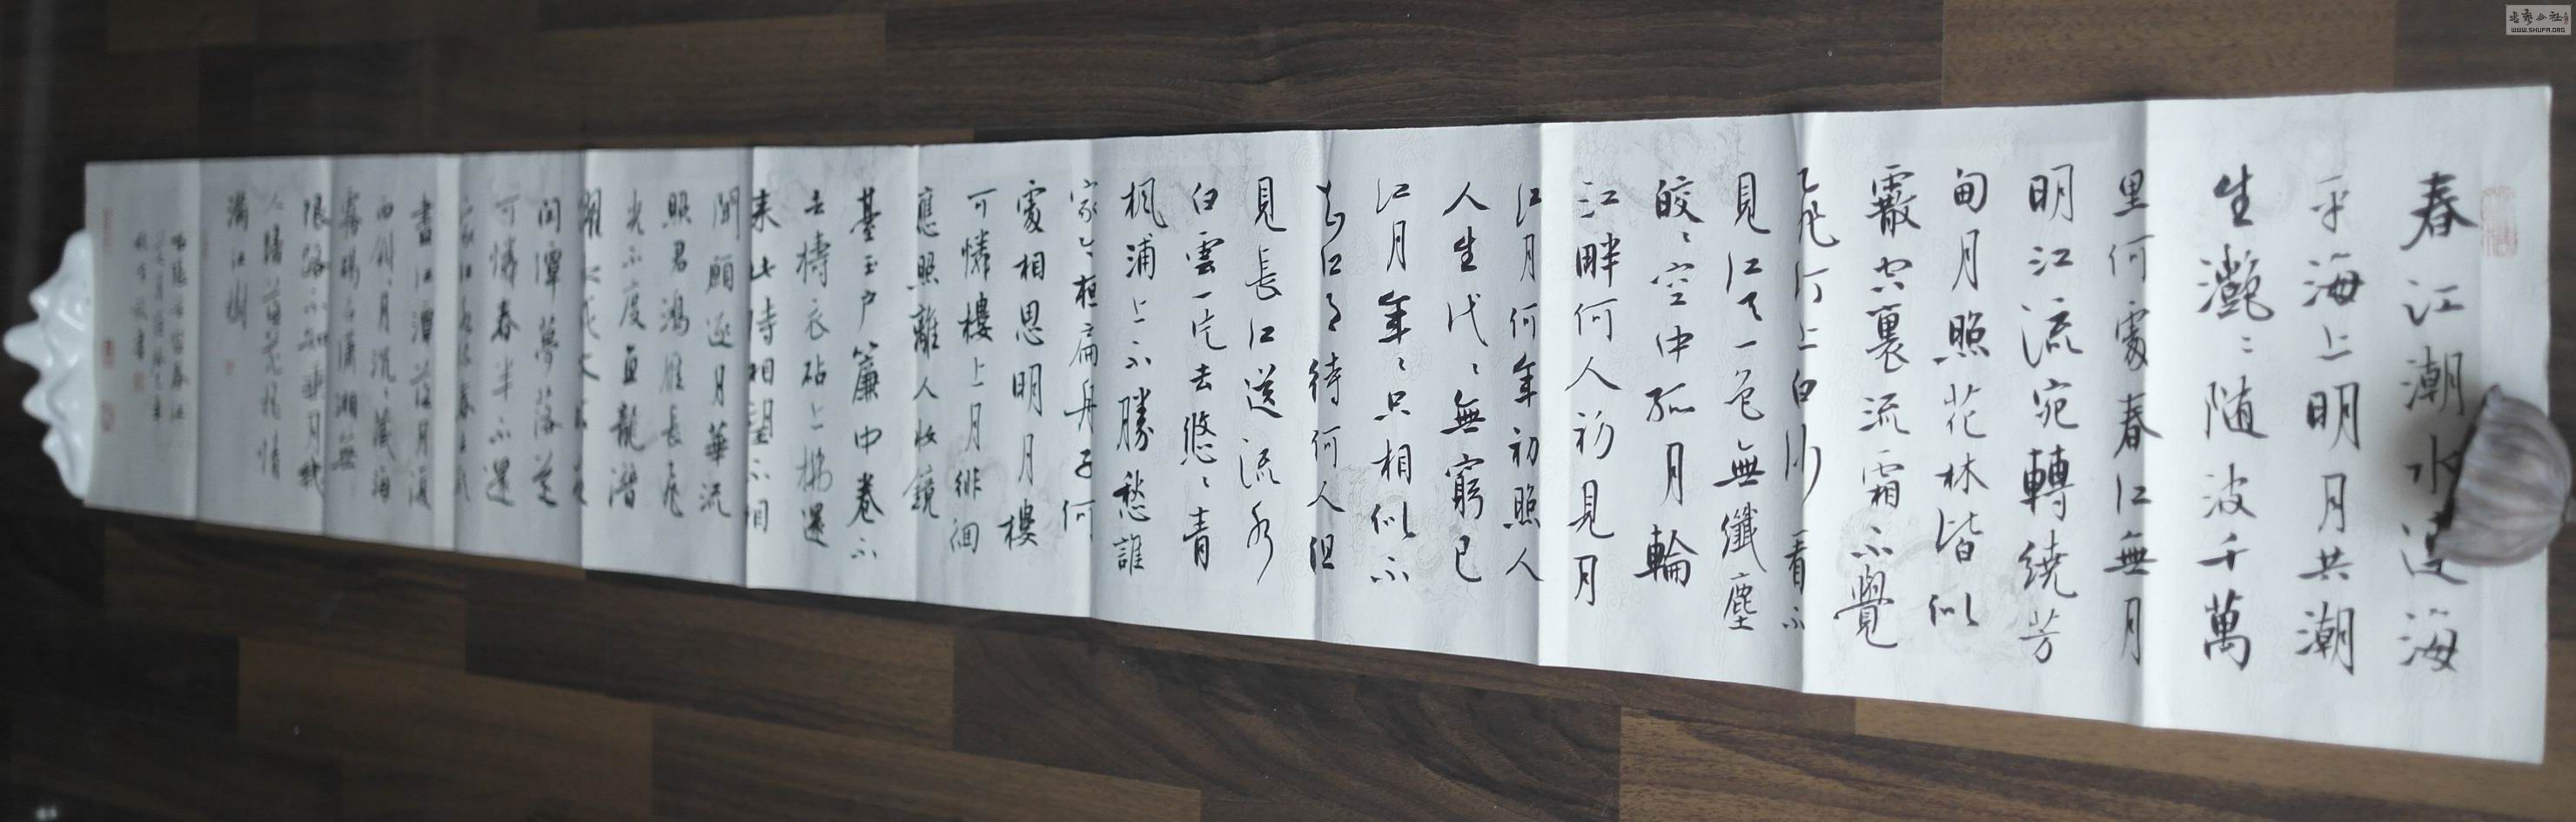 春江潮水連海
平海上明月共潮
生灔〻隨波千萬
里何處春江無月
明江流宛轉繞芳
甸月照花林皆似
霰空裏流霜不覺
飛汀上白沙看不
見江天一色無纖塵
皎〻空中孤月輪
江畔何人初見月
江月何年初照人
人生代〻無窮已
江月年〻只相似不
知江月待何人但
見長江送流水
白雲一片去悠〻青
楓浦上不勝愁誰
家今夜扁舟子何
處相思明月樓
可憐樓上月徘徊
應照離人妝鏡
臺玉户簾中卷不
去擣衣砧上拂還
来此時相望不相
聞願逐月華流
照君鴻雁長飛
光不度魚龍潛
躍水成文昨夜
閒潭夢落花
可憐春半不還
家江水流春去欲
盡江潭落月復
西斜月沉〻藏海
霧碣石瀟湘無
限路不知乘月幾
人歸落花摇情
滿江樹
書法公社
WWW.SHUFA.ORG